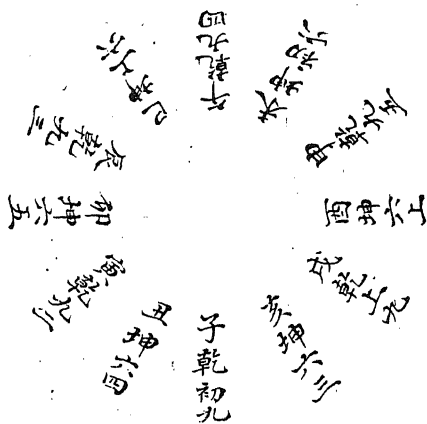 子乾初九
丑坤六四
寅乾九二
卯坤六五
辰乾九三
巳坤上六
午乾九四
未坤初六
申乾九五
酉坤六二
戌乾上九
亥坤六三